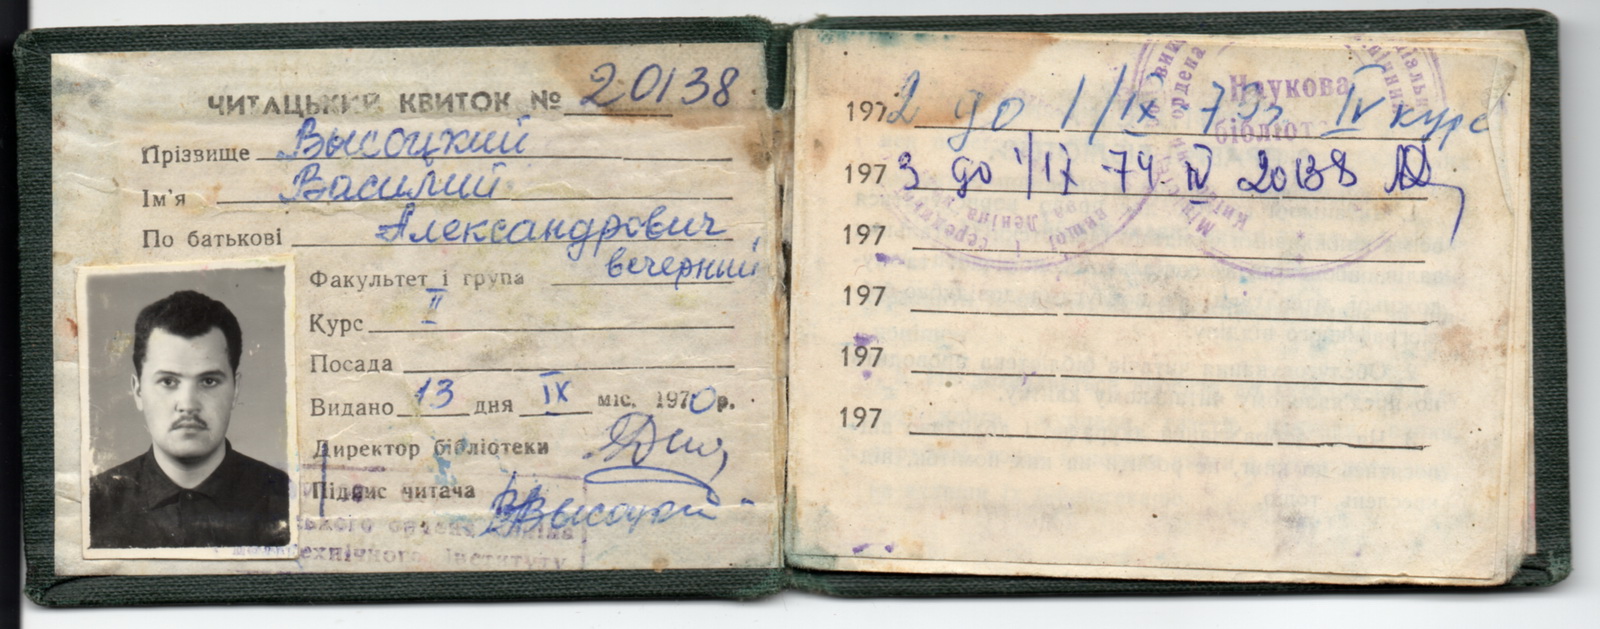 ЧИТАЦЬКИЙ КВИТОК № 20138
Прізвище Высоцкий
Ім'я Василий
По батькові Александрович
Факультет і група вечерний
Курс II
Посада
Видано 13 дня IX міс. 1970 р.
Директор бібліотеки
Підпис читача ВВысоцкий
ордена Леніна
політехнічного інституту
1972 до 1/IX 73г IV курс
1973 до 1/IX 74 IV 20138
197
197
197
197
Наукова
бібліотека